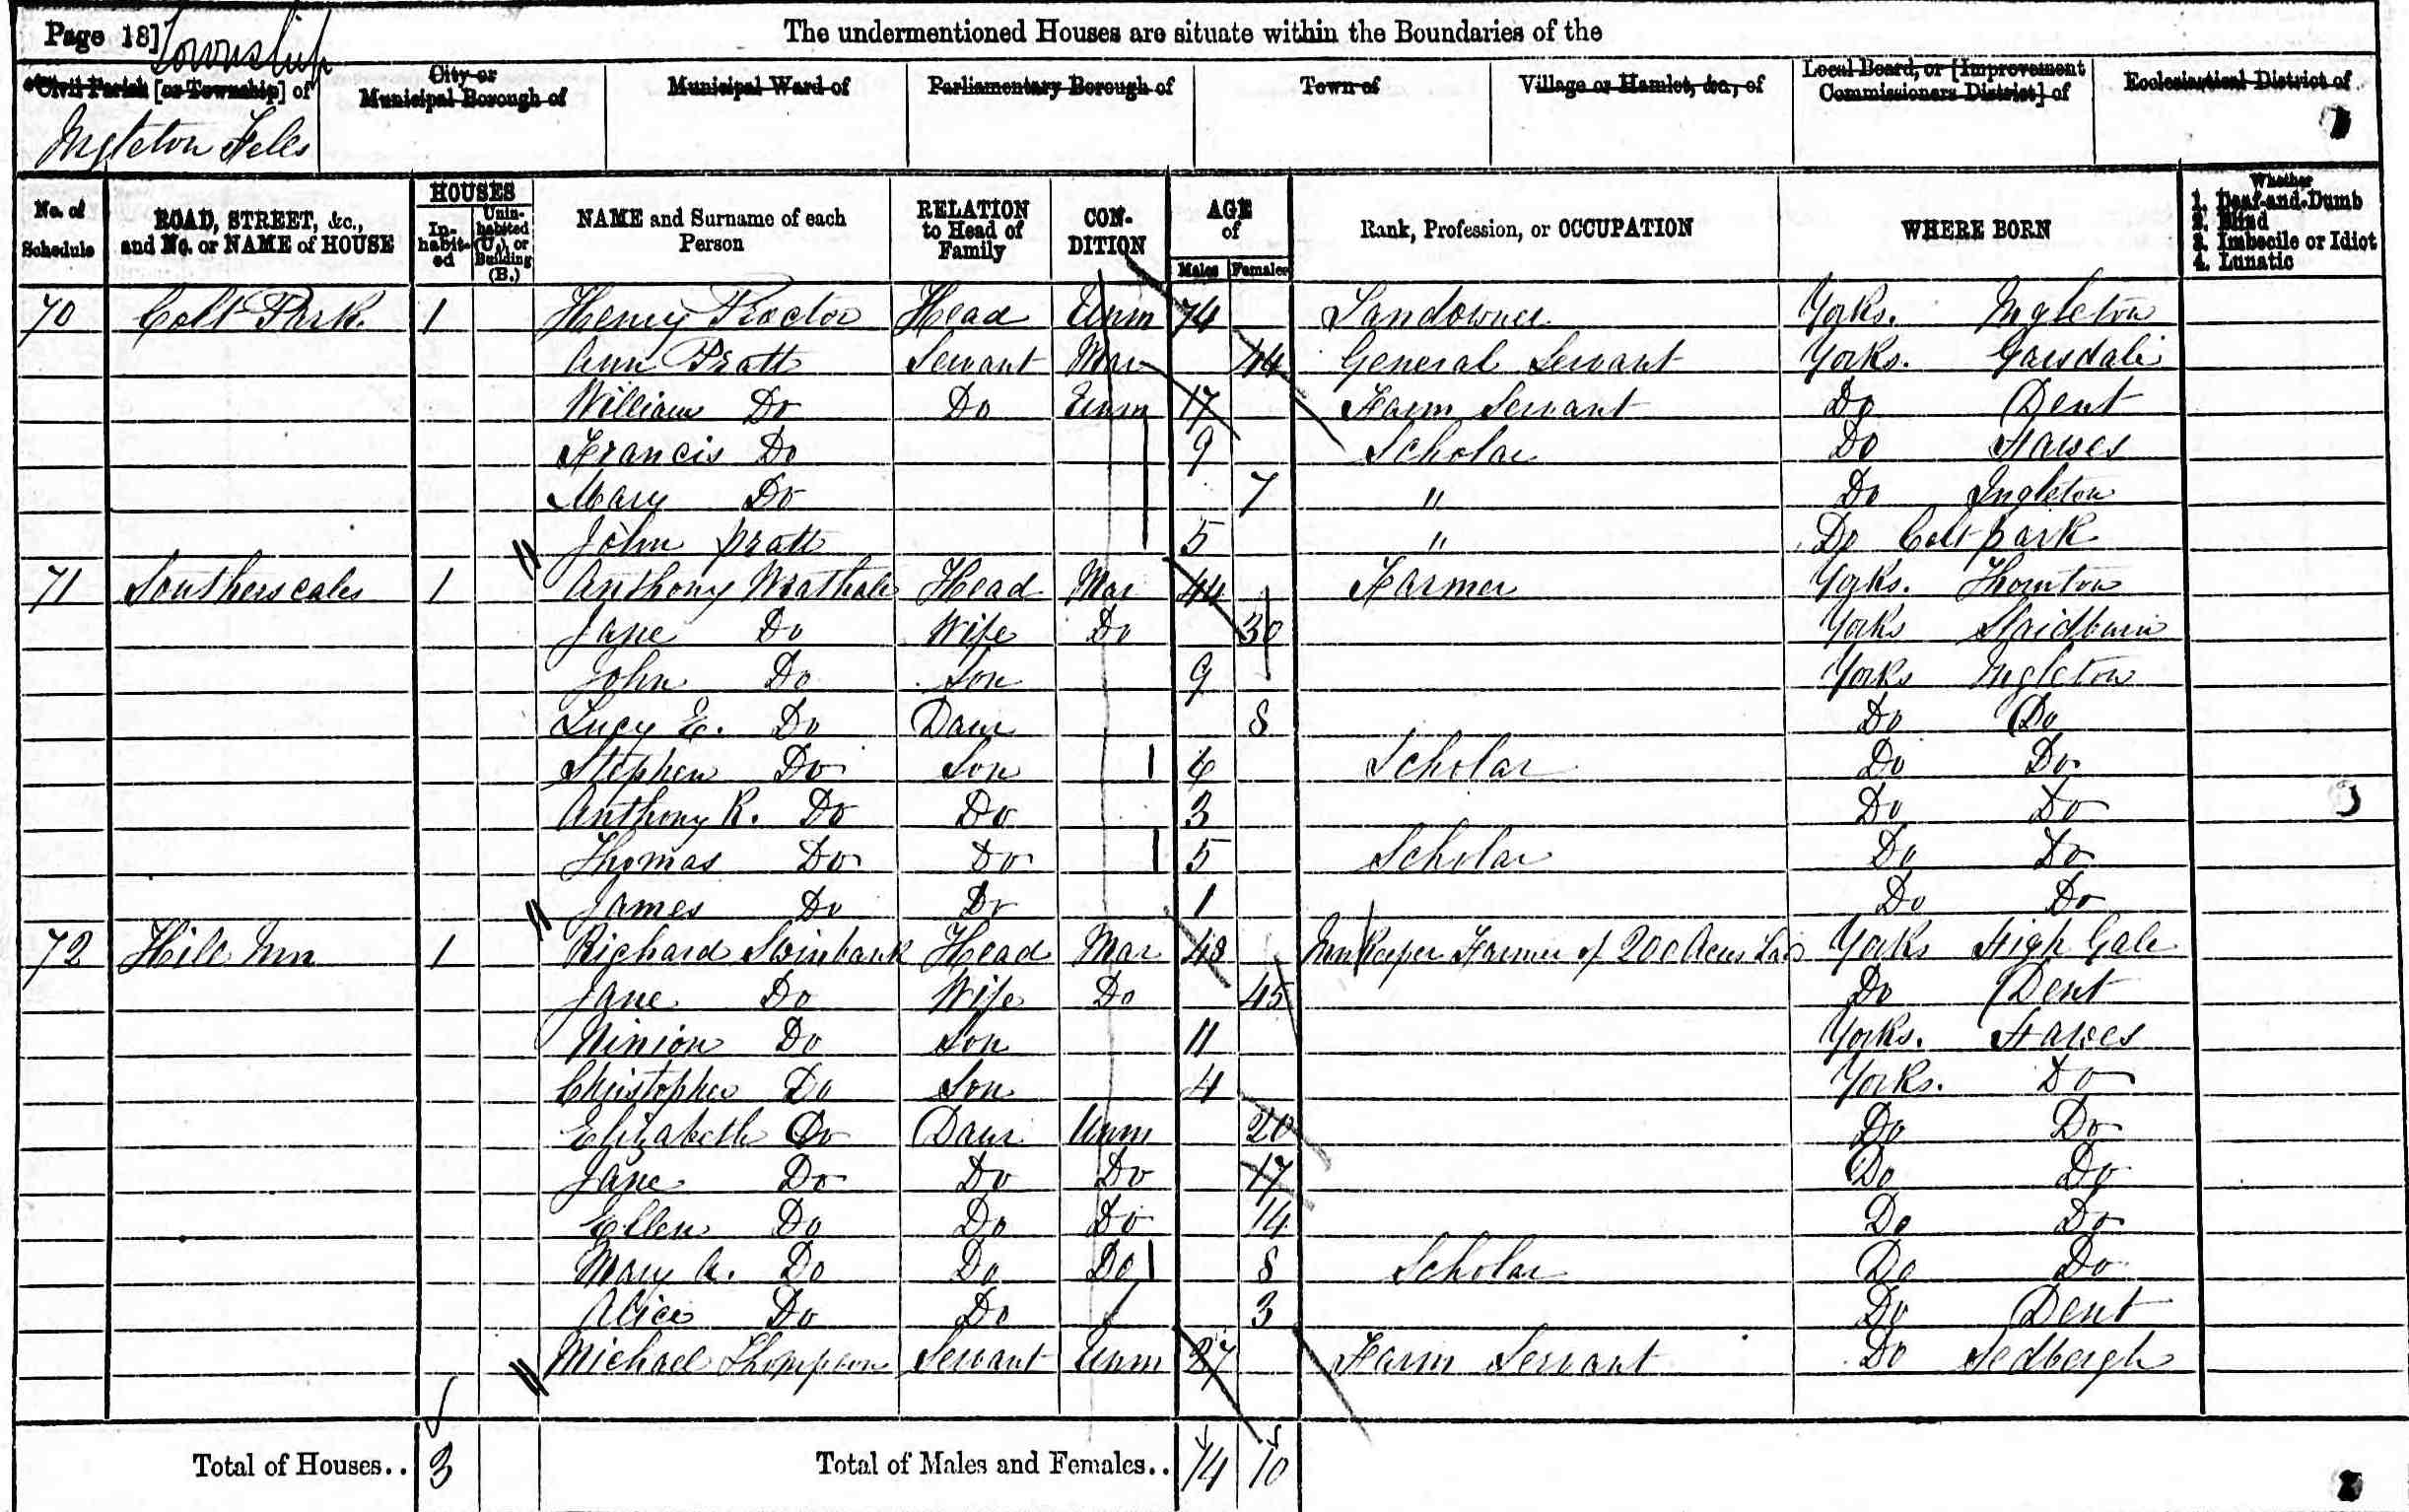 Page 18] Township The undermentioned Houses are situate within the Boundaries of the
Civil Parish [or Township] of City or Municipal Borough of Municipal Ward of Parliamentary Borough of Town of Village or Hamlet, &c., of Local Board, or [Improvement Commissioners District] of Ecclesiastical District of
Ingleton Fells
No. of Schedule ROAD, STREET, &c., and No. or NAME of HOUSE HOUSES In-habit-ed Unin-habited (U.), or Building (B.) NAME and Surname of each Person RELATION to Head of Family CON-DITION AGE of Males Females Rank, Profession, or OCCUPATION WHERE BORN Whether 1. Deaf-and-Dumb 2. Blind 3. Imbecile or Idiot 4. Lunatic
70 Colt Park. 1 Henry Proctor Head Unm 74 Landowner Yorks. Ingleton
Ann Pratt Servant Mar 44 General Servant Yorks. Garsdale
William Do Do Unm 17 Farm Servant Do Dent
Francis Do 9 Scholar Do Hawes
Mary Do 7 " Do Ingleton
John Pratt 5 " Do Colt park
71 Southerscales 1 Anthony Wrathall Head Mar 44 Farmer Yorks. Thornton
Jane Do Wife Do 30 Yorks Slaidburn
John Do Son 9 Yorks Ingleton
Lucy E. Do Daur 8 Do Do
Stephen Do Son 6 Scholar Do Do
Anthony R. Do Do 3 Do Do
Thomas Do Do 5 Scholar Do Do
James Do Do 1 Do Do
72 Hill Inn 1 Richard Swinbank Head Mar 48 InnKeeper Farmer of 200 Acres Yorks High Gale
Jane Do Wife Do 45 Do Dent
Ninion Do Son 11 Yorks. Hawes
Christopher Do Son 4 Yorks. Do
Elizabeth Do Daur Unm 20 Do Do
Jane Do Do Do 17 Do Do
Ellen Do Do Do 14 Do Do
Mary A. Do Do Do 8 Scholar Do Do
Alice Do Do 3 Do Dent
Michael Thompson Servant Unm 27 Farm Servant Do Sedbergh
Total of Houses.. 3 Total of Males and Females.. 14 10